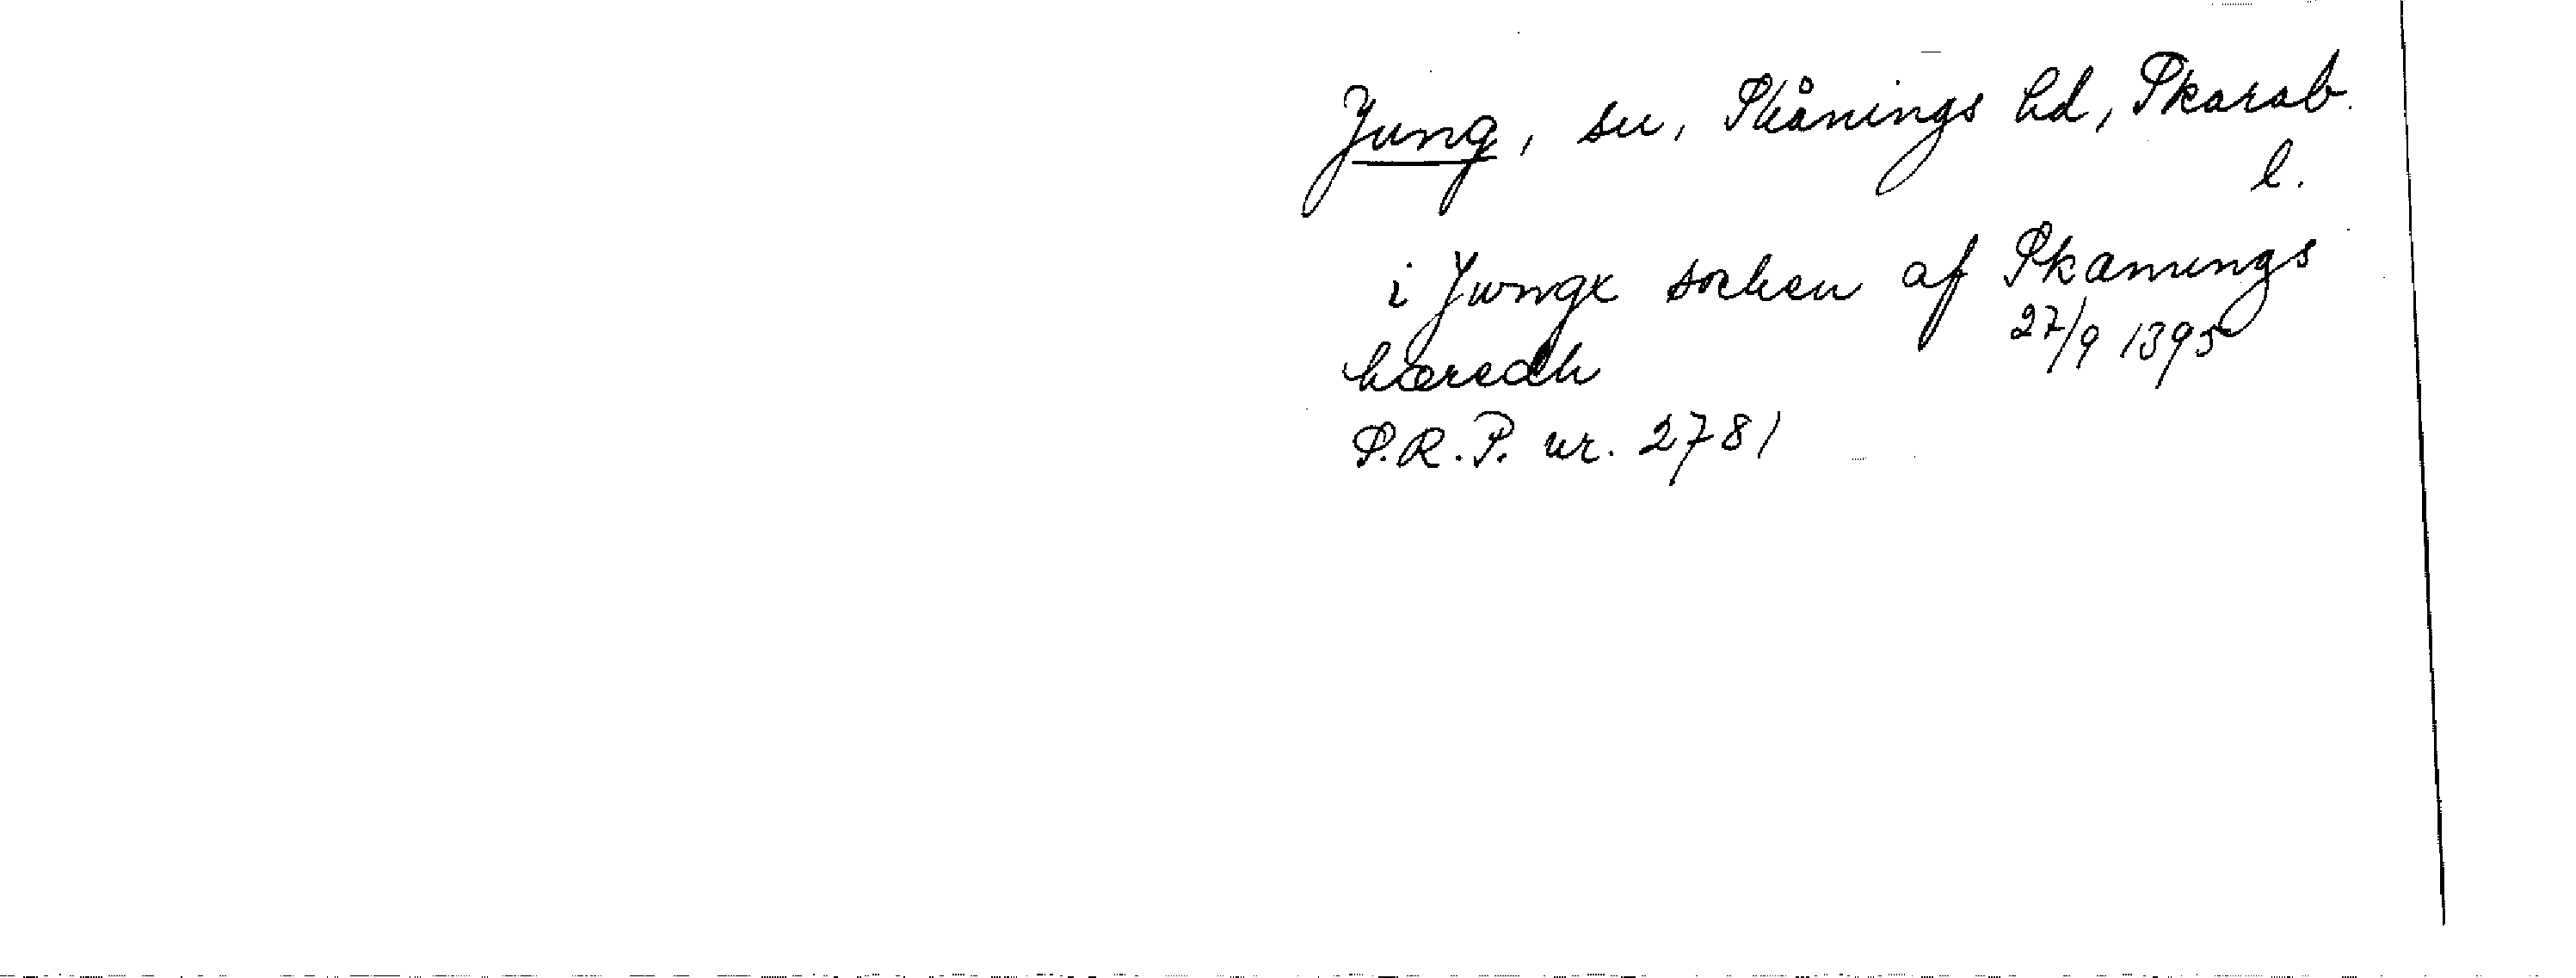 Jung, sn, Skånings hd, Skarab.
l.
i Jwngx sochen af Skanungs
hæredh 27/9 1395
S.R.P. nr. 2781